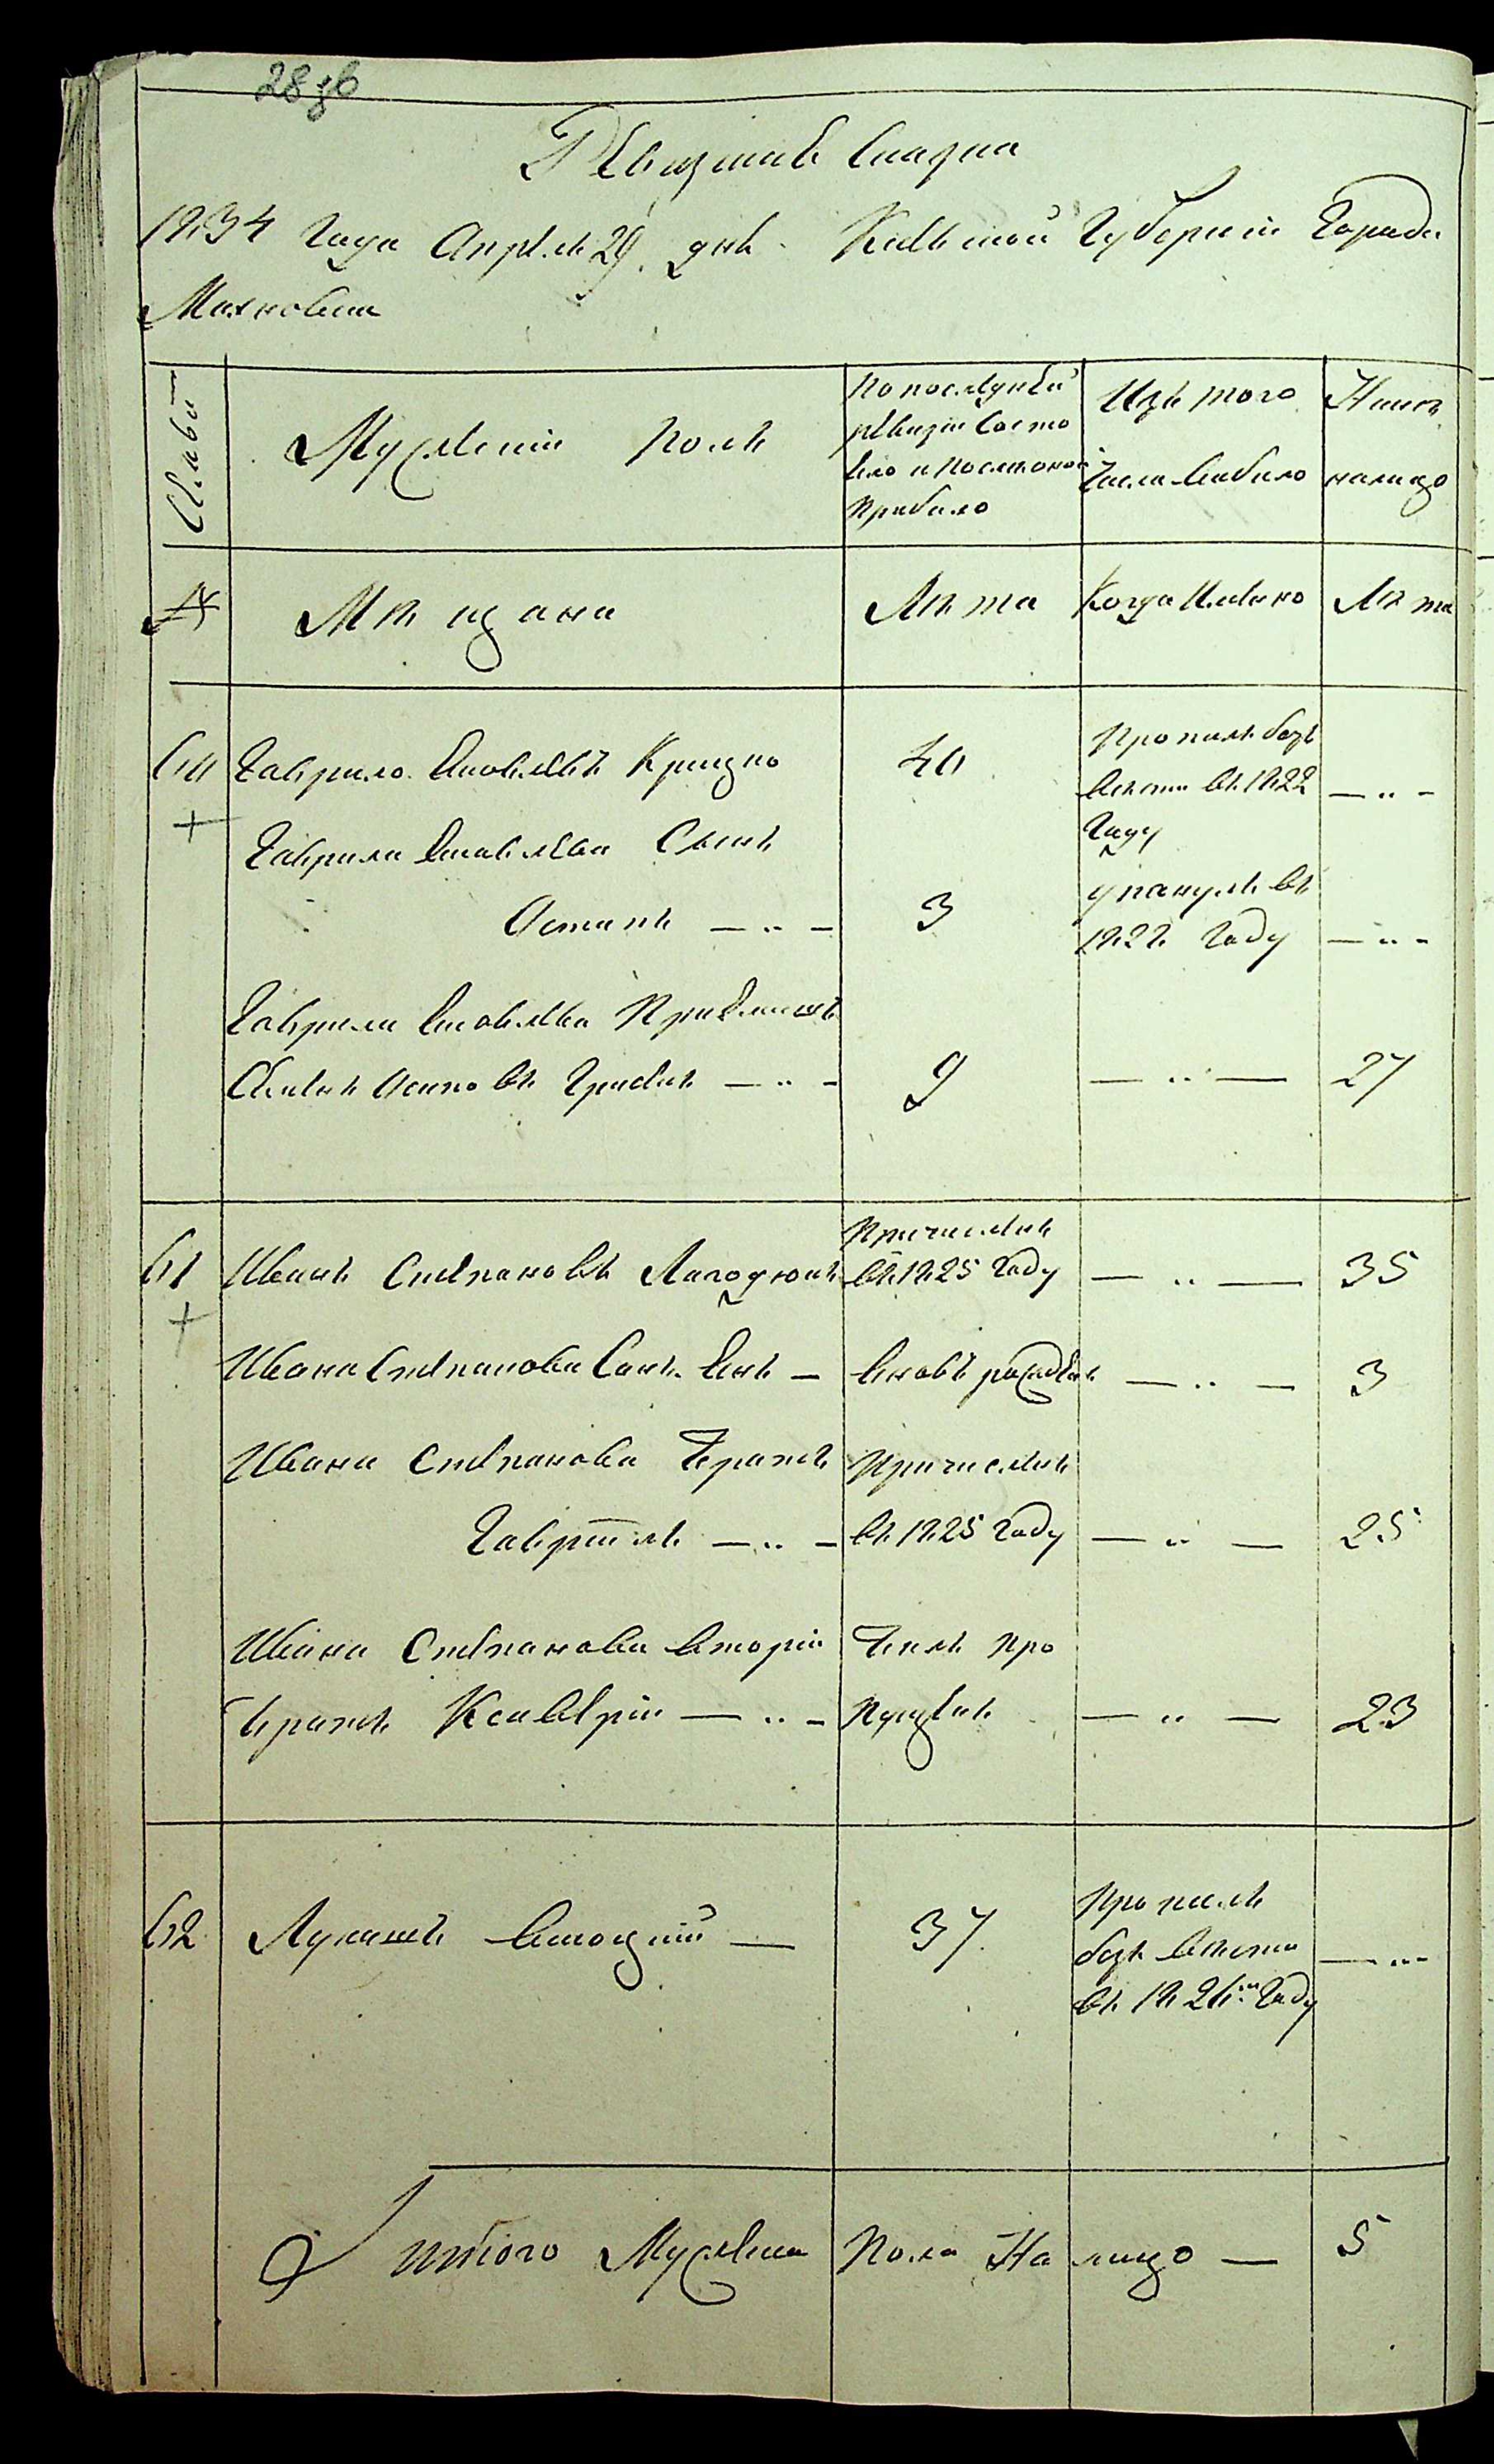 28 зв
Ревизская Сказка
1834 Года Апреля 29 дня Киевской Губернии Города
Махновки
Семьи
Мужеский полъ
По последней
ревизии Состо
яло и после оной
прибыло
Изъ того
Числа выбыло
Ныне
налицо
№
Мѣщане
Лѣта
Когда Именно
Лѣта
60
Гаврило Яковлевъ
40
Пропалъ безъ
вести въ 1822
Году
— „ —
Гаврила Яковлева Сынъ
Остапъ — „ —
3
въ
1828 Году
— „ —
Гаврила Яковлева
Осиповъ — „ —
9
— „ —
27
61
Иванъ Степановъ Лагодюкъ
Причисленъ
въ 1825 Году
— „ —
35
Ивана Степанова Сынъ Янъ —
вновь рожденъ
— „ —
3
Ивана Степанова Братъ
Гавріилъ — „ —
Причисленъ
въ 1825 Году
— „ —
25
Ивана Степанова вторий
братъ Ксаверій — „ —
Былъ про
пущенъ
— „ —
23
62
Лукашъ —
37
Пропалъ
безъ вести
въ 1826м Году
— „ —
Итого Мужеска Пола На лицо —
5